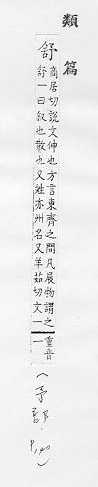 類篇
舒 商居切說文伸也方言東齊之間凡展物謂之
舒一曰叙也散也又姓亦州名又羊茹切文一
重音一
(予部.
P.140)